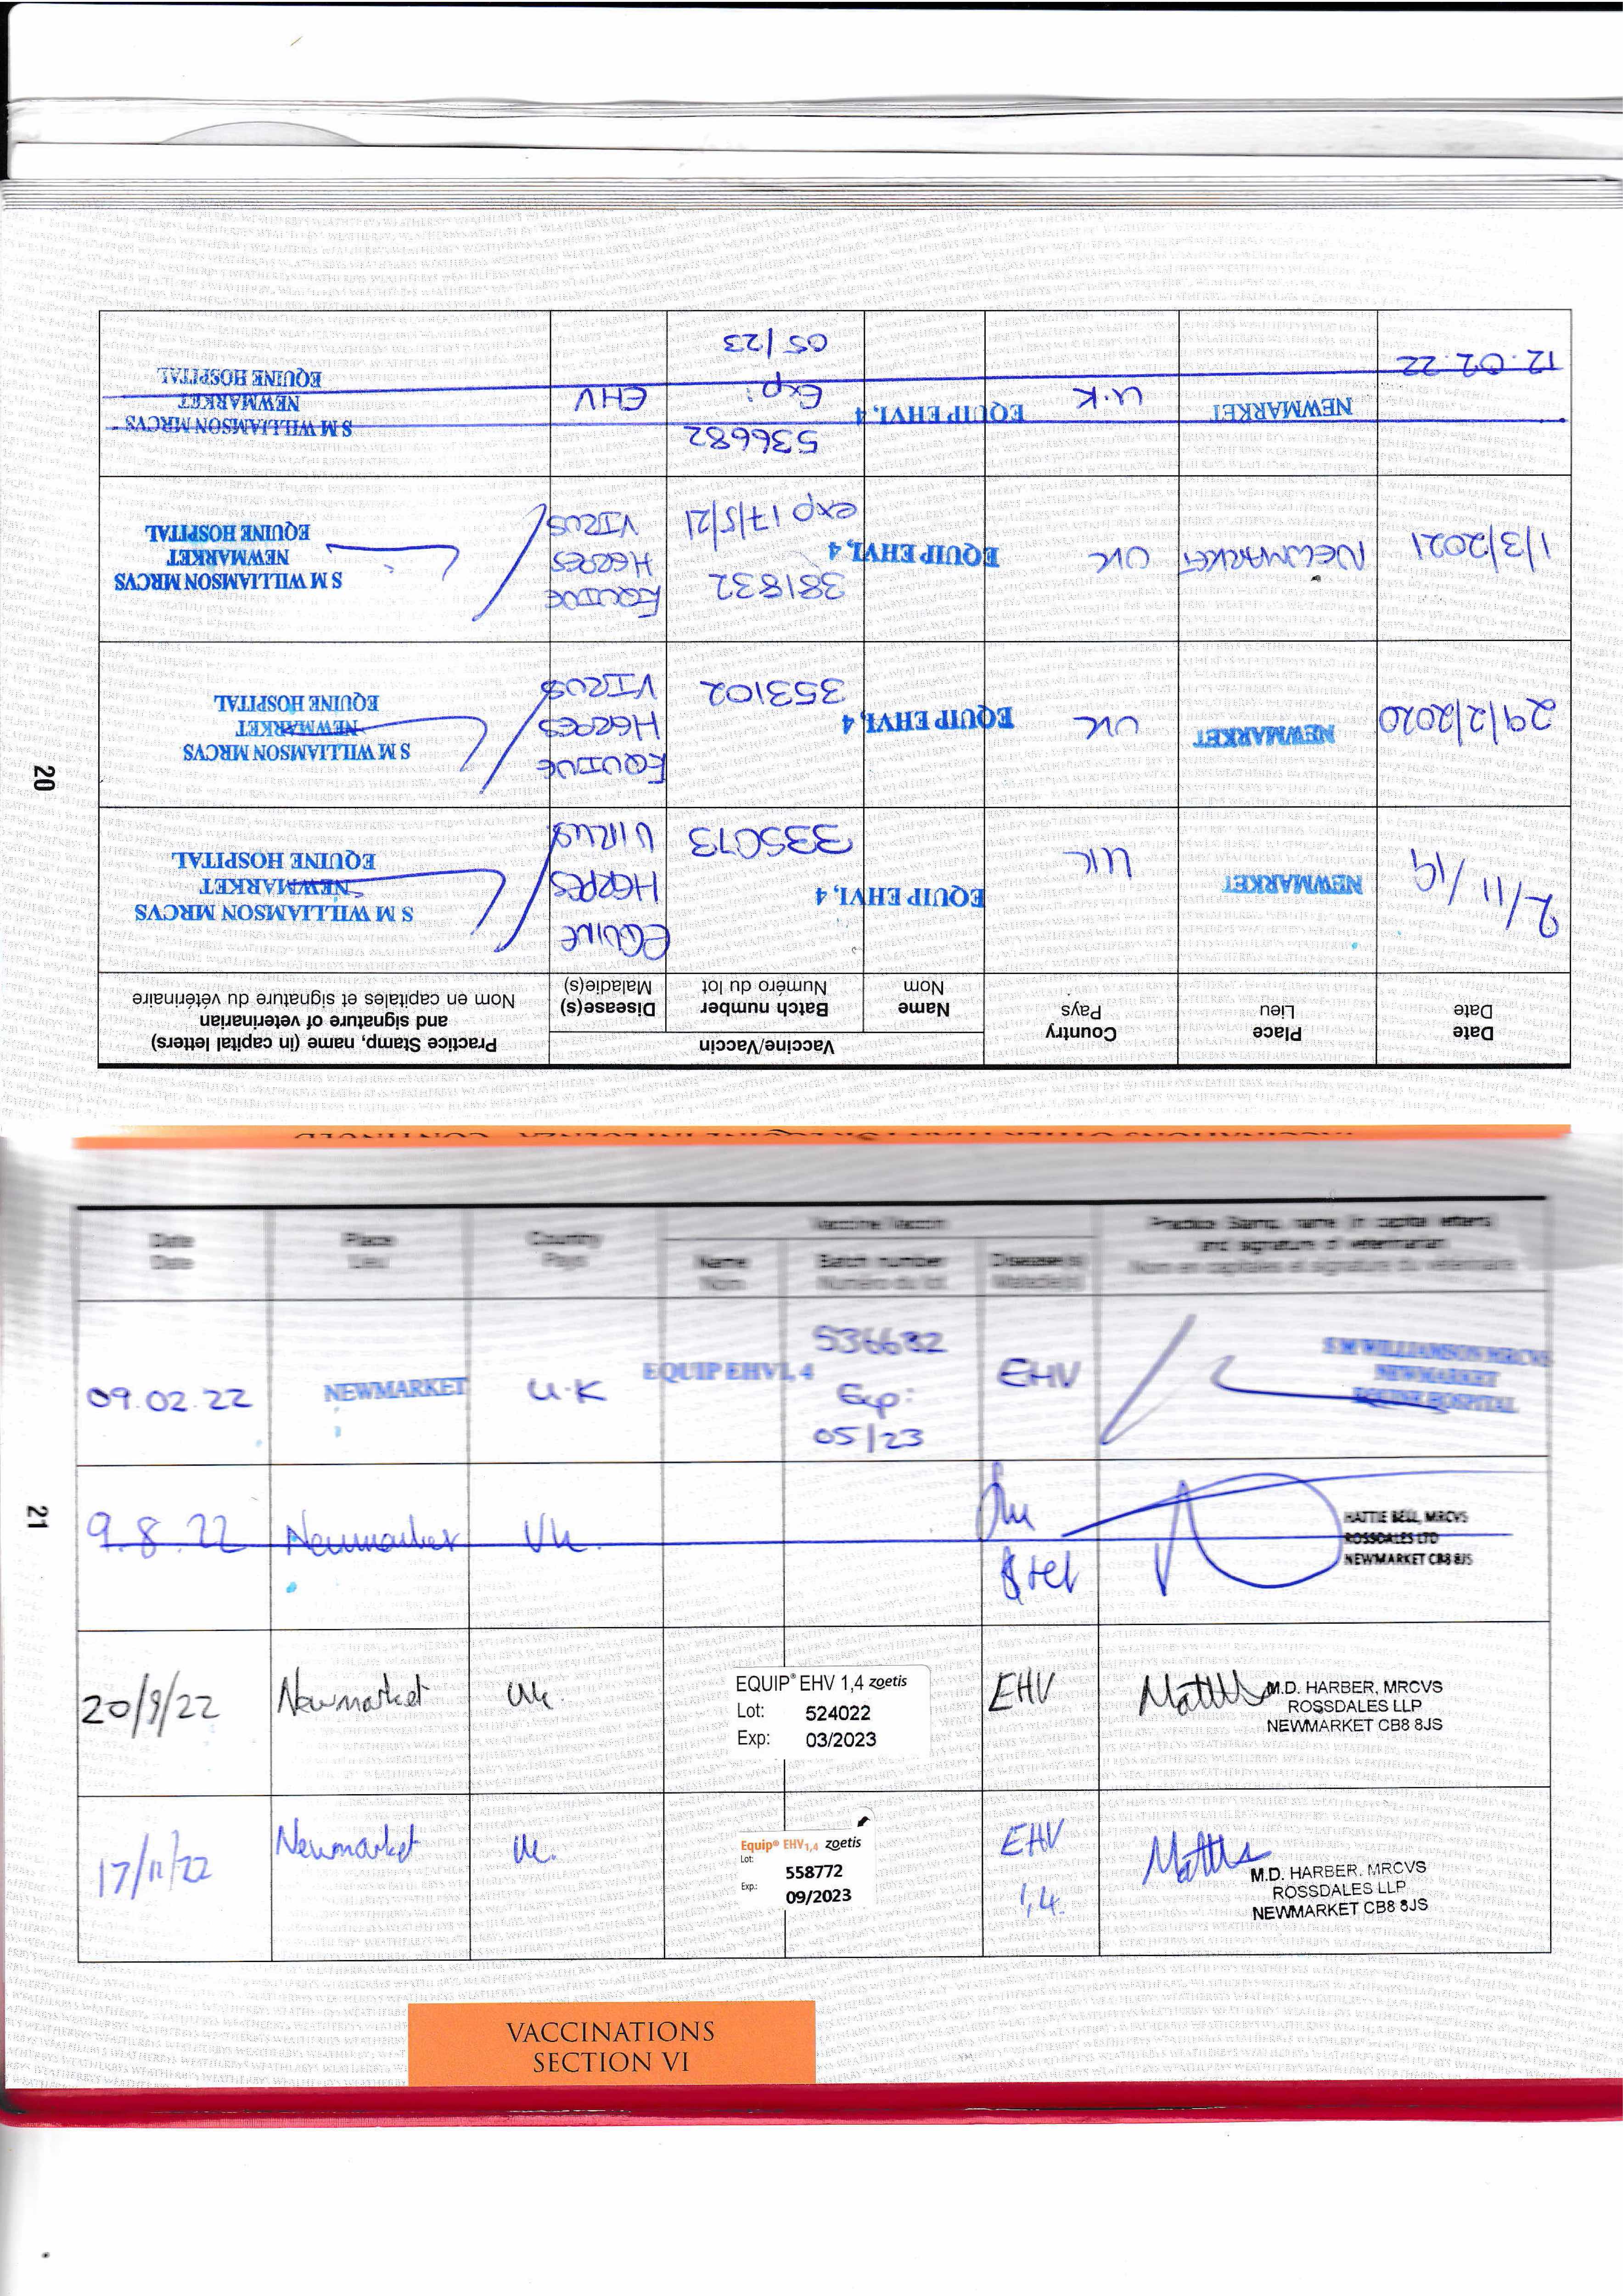 20
Date
Date
Place
Lieu
Country
Pays
Vaccine/Vaccin
Name
Nom
Batch number
Numéro du lot
Disease(s)
Maladie(s)
Practice Stamp, name (in capital letters)
and signature of veterinarian
Nom en capitales et signature du vétérinaire
2/11/19
NEWMARKET
UK
EQUIP EHV1, 4
335073
EQUINE
HERPES
VIRUS
S M WILLIAMSON MRCVS
NEWMARKET
EQUINE HOSPITAL
29/2/2020
NEWMARKET
UK
EQUIP EHV1, 4
353102
EQUINE
HERPES
VIRUS
S M WILLIAMSON MRCVS
NEWMARKET
EQUINE HOSPITAL
1/3/2021
NEWMARKET
UK
EQUIP EHV1, 4
381832
exp 17/5/21
EQUINE
HERPES
VIRUS
S M WILLIAMSON MRCVS
NEWMARKET
EQUINE HOSPITAL
12.02.22
NEWMARKET
U.K
EQUIP EHV1, 4
536682
Exp:
05/23
EHV
S M WILLIAMSON MRCVS
NEWMARKET
EQUINE HOSPITAL
21
Date
Date
Place
Lieu
Country
Pays
Vaccine/Vaccin
Name
Nom
Batch number
Numéro du lot
Disease(s)
Maladie(s)
Practice Stamp, name (in capital letters)
and signature of veterinarian
Nom en capitales et signature du vétérinaire
09.02.22
NEWMARKET
U.K
EQUIP EHV1, 4
536682
Exp:
05/23
EHV
S M WILLIAMSON MRCVS
NEWMARKET
EQUINE HOSPITAL
9.8.22
Newmarket
UK.
HATTIE BELL, MRCVS
ROSSDALES LTD
NEWMARKET CB8 8JS
20/9/22
Newmarket
UK.
EQUIP® EHV 1,4 zoetis
Lot: 524022
Exp: 03/2023
EHV
M.D. HARBER, MRCVS
ROSSDALES LLP
NEWMARKET CB8 8JS
17/11/22
Newmarket
UK.
Equip® EHV1,4 zoetis
Lot:
558772
Exp.:
09/2023
EHV
1,4.
M.D. HARBER, MRCVS
ROSSDALES LLP
NEWMARKET CB8 8JS
VACCINATIONS
SECTION VI